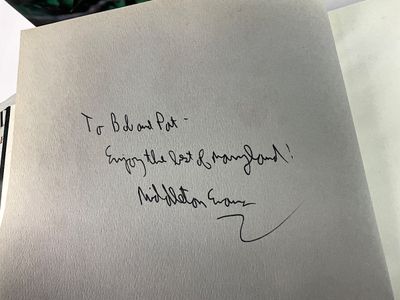 To Bob and Pat -
Enjoy the best of Maryland!
Middleton Evans